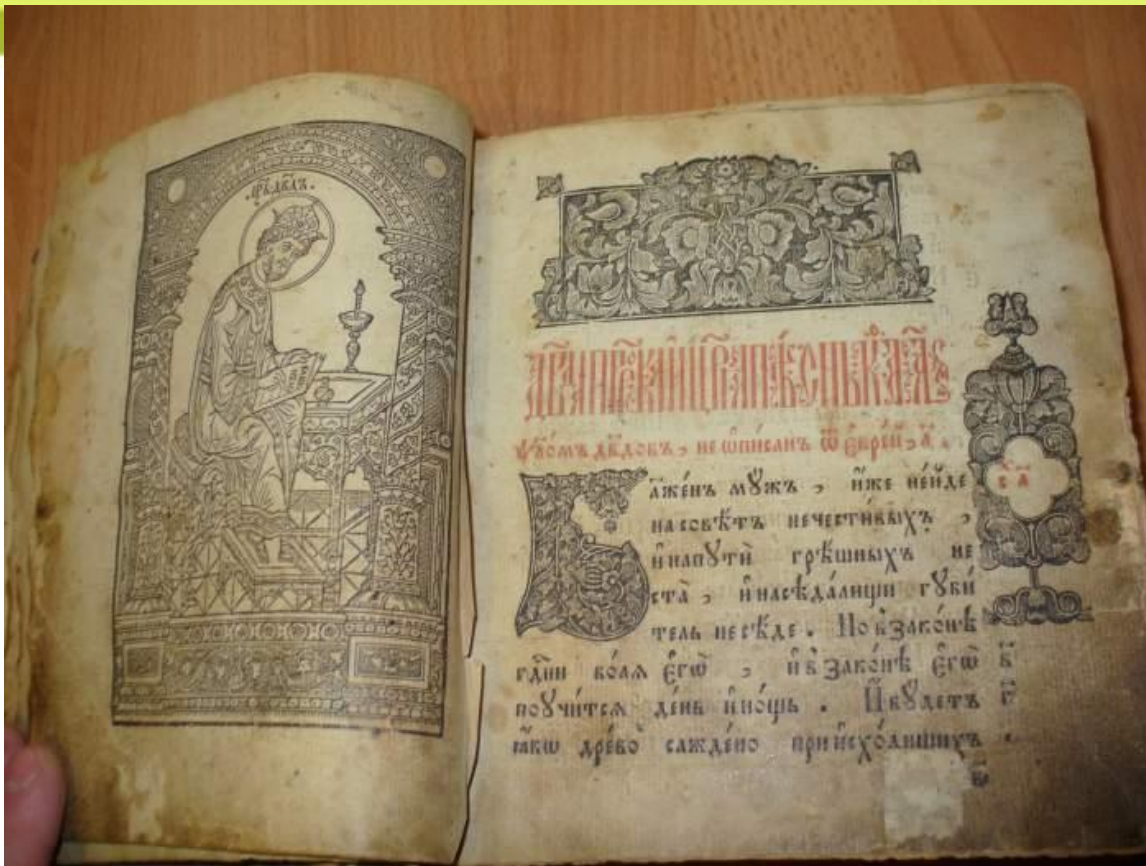 цр҃ь дв҃дъ.
ѱал҃омъ дв҃довъ, не ѡписанъ ѿ є҆врє́й, а҃.
Блаже́нъ мꙋ́жъ, и҆́же не и҆́де
на совѣ́тъ нечести́выхъ,
и҆ на пꙋти̂ грѣ́шныхъ не
ста̀, и҆ на сѣда́лищи гꙋби́
тель не сѣ́де. Но в зако́нѣ
гд҃ни во́лѧ є҆гѡ̀, и҆ в зако́нѣ є҆гѡ̀
поꙋчи́тсѧ де́нь и҆ но́щь. И҆ бꙋ́детъ
ꙗ҆́кѡ дре́во саждено̀ при и҆схо́дищихъ